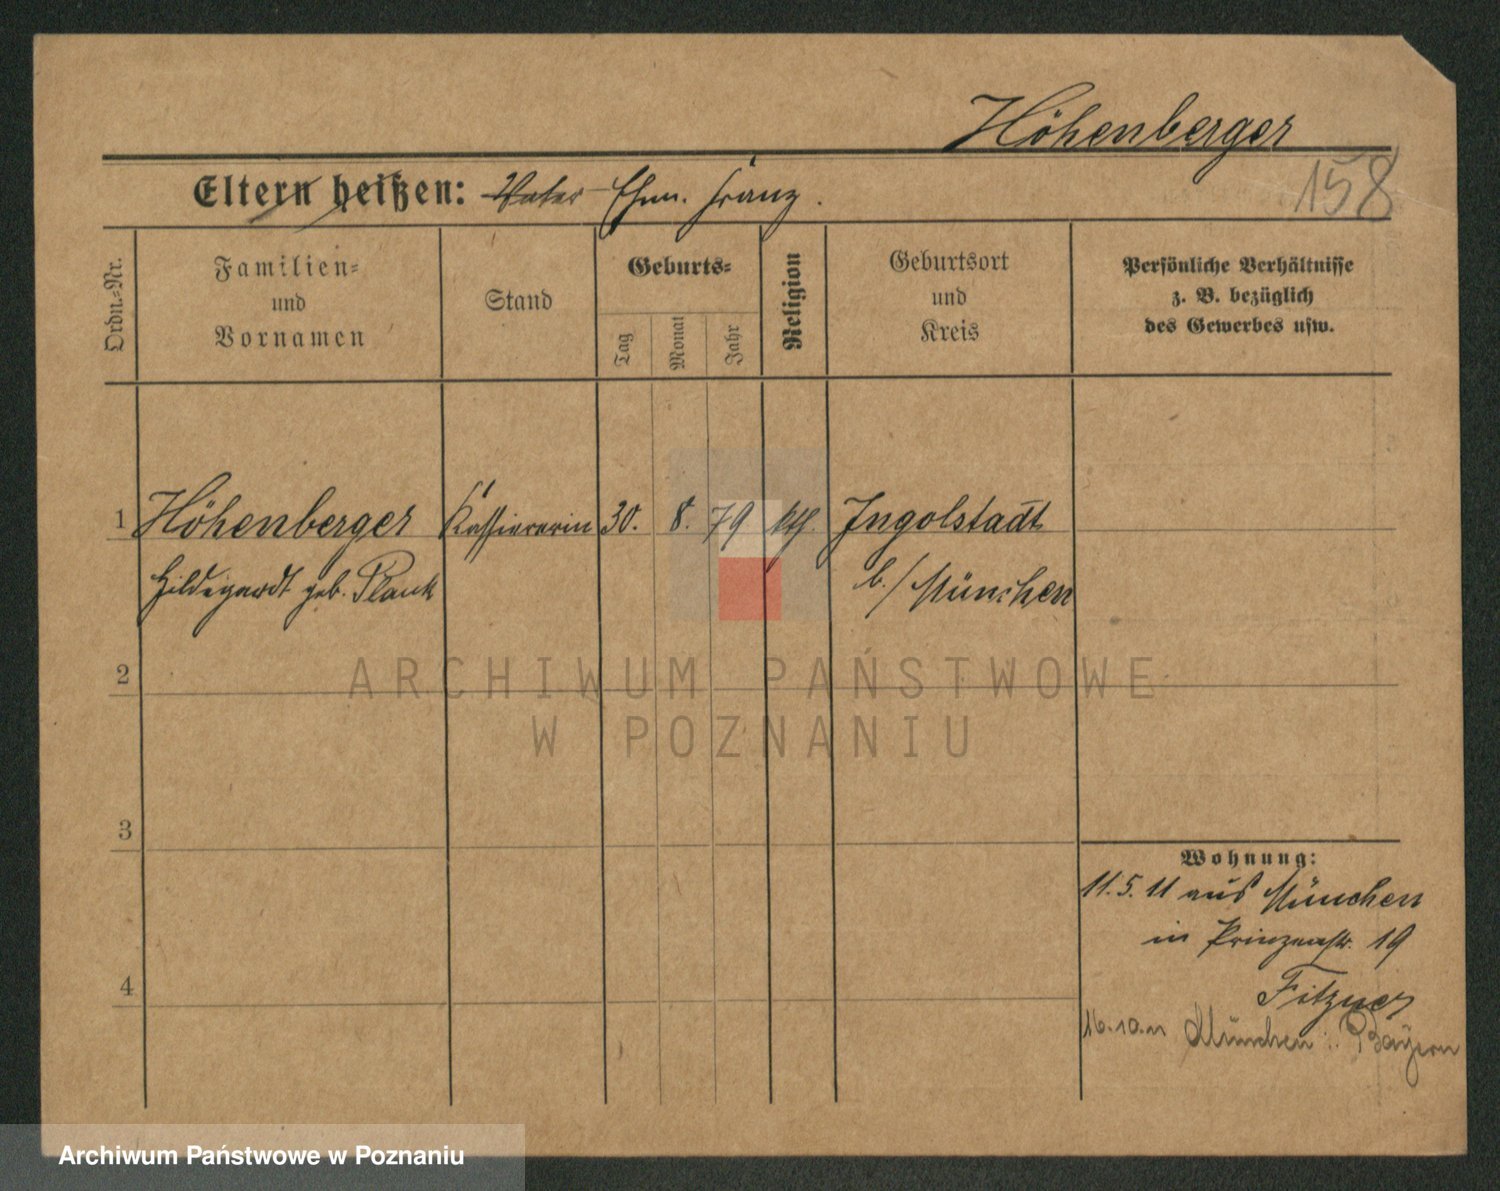 Höhenberger
158
Eltern heißen: Vater Ehm. Franz.
Ordn.-Nr.
Familien-
und
Vornamen
Stand
Geburts-
Tag
Monat
Jahr
Religion
Geburtsort
und
Kreis
Persönliche Verhältnisse
z. B. bezüglich
des Gewerbes usw.
1 Höhenberger Kassiererin 30. 8. 79 Ingolstadt
Hildegardt geb. Plank b./München
2
ARCHIWUM PAŃSTWOWE
W POZNANIU
3
Wohnung:
11.5.11 aus München
in Prinzenstr. 19
Fitzner
4
16.10.11 München i. Bayern
Archiwum Państwowe w Poznaniu